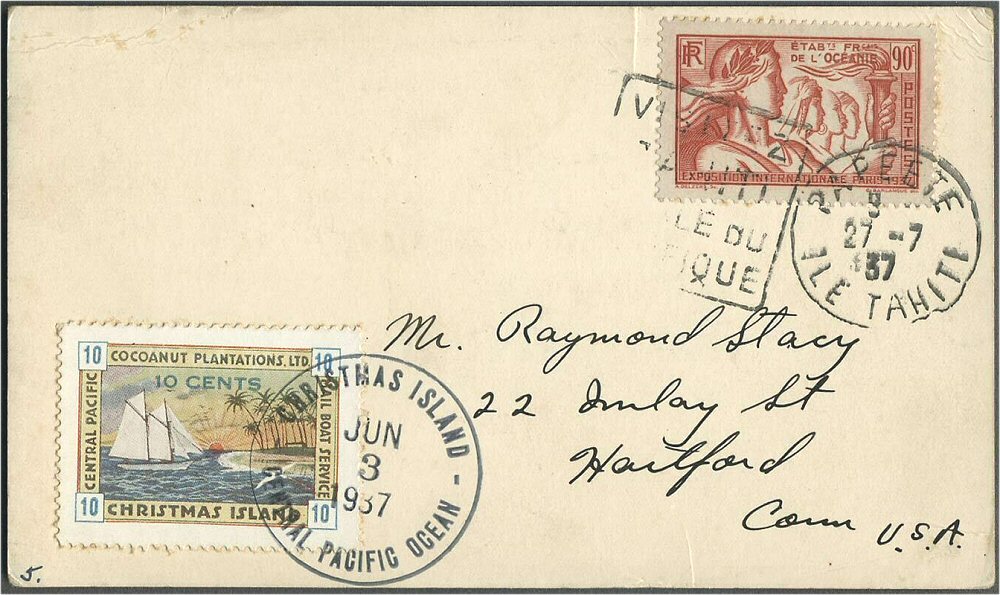 RF
ÉTABTS FRÇAIS
DE L'OCÉANIE
90c
POSTES
EXPOSITION INTERNATIONALE PARIS 1937
VISITEZ
TAHITI
LE DU
FIQUE
PAPEETE
27 -7
37
ILE TAHITI
Mr. Raymond Stacy
22 Imlay St
Hartford
Conn U.S.A.
10 COCOANUT PLANTATIONS, LTD. 10
10 CENTS
CENTRAL PACIFIC
SAIL BOAT SERVICE
10 CHRISTMAS ISLAND 10
CHRISTMAS ISLAND
JUN
3
1937
CENTRAL PACIFIC OCEAN
5.